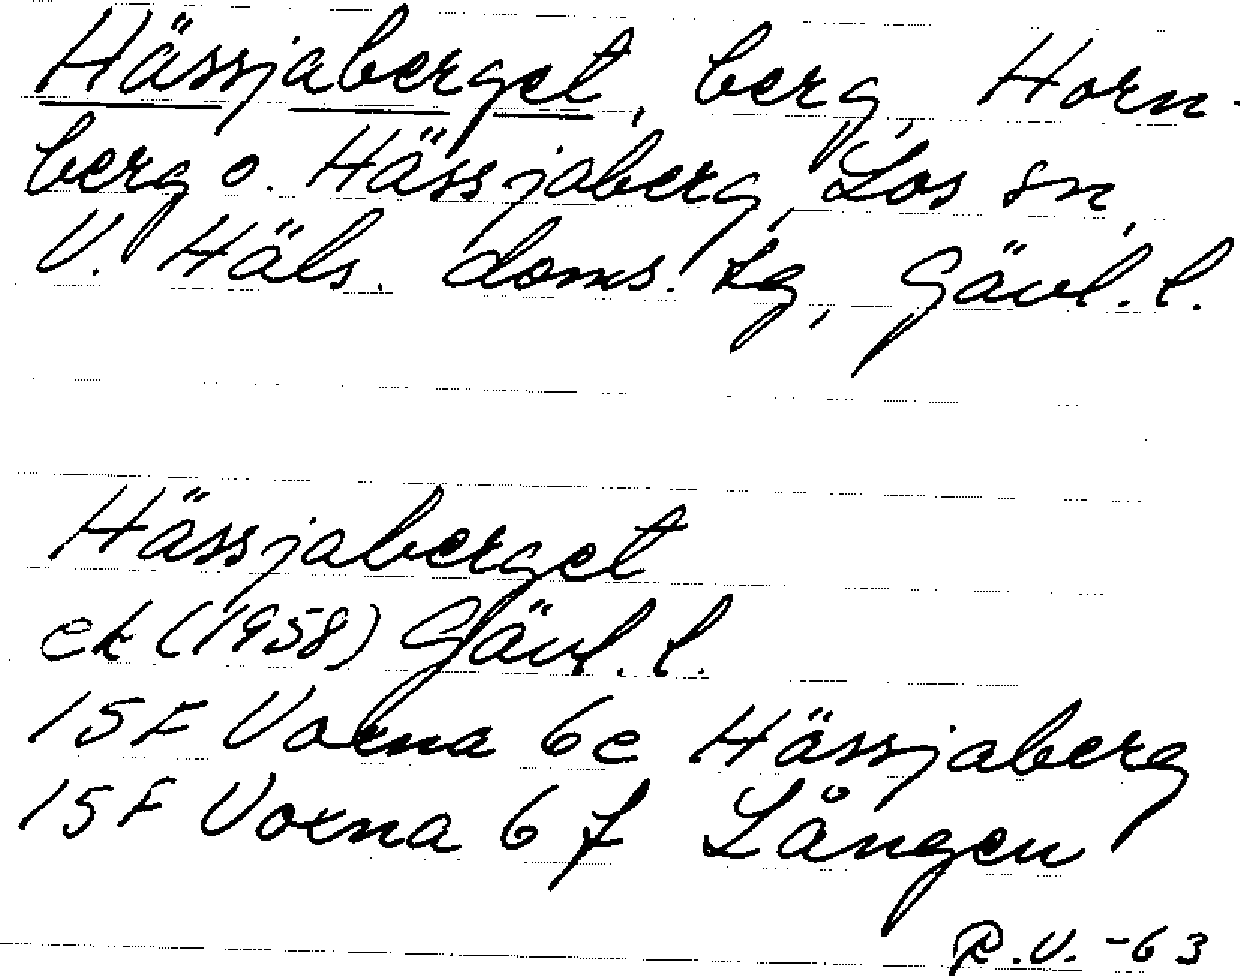 Hässjaberget, berg, Horn-
berg o. Hässjaberg, Los sn,
V. Häls. doms. tg, Gävl. l.
Hässjaberget
ek (1958) Gävl. l.
15F Voxna 6e Hässjaberg
15F Voxna 6f Lången
R.V. -63